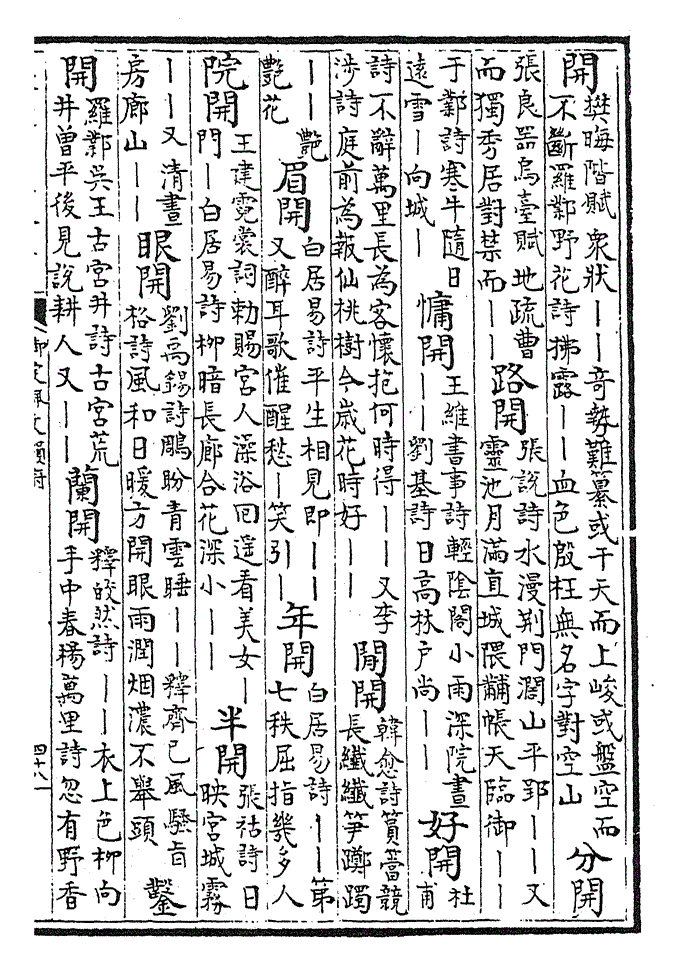 開 樊晦階賦衆狀——奇勢難纂或干天而上峻或盤空而不斷羅鄴野花詩拂露——血色殷枉無名字對空山 分開
張良器烏臺賦地疏曹而獨秀居對禁而—— 路開 張說詩水漫荆門濶山平郢——又靈池月滿直城隈黼帳天臨御——
于鄴詩寒牛隨日遠雪—向城— 慵開 王維書事詩輕陰閣小雨深院晝——劉基詩日高林户尚—— 好開 杜甫
詩不辭萬里長為客懷抱何時得——又李涉詩庭前為報仙桃樹今歳花時好—— 閒開 韓愈詩篔簹競長纖纖笋躑躅
——艷艷花 眉開 白居易詩平生相見即——又醉耳歌催醒愁—笑引— 年開 白居易詩——第七秩屈指幾多人
院開 王建霓裳詞勅賜宫人澡浴囘遥看美女—門—白居易詩柳暗長廊合花深小—— 半開 張祜詩日映宫城霧
——又清晝房廊山—— 眼開 劉禹錫詩鵰盼青雲睡——釋齊己風騷旨格詩風和日暖方開眼雨潤烟濃不舉頭 鑿
開 羅鄴吳王古宫井詩古宫荒井曽平後見說耕人又—— 蘭開 釋皎然詩——衣上色柳向手中春楊萬里詩忽有野香
御定佩文韻府
四十八